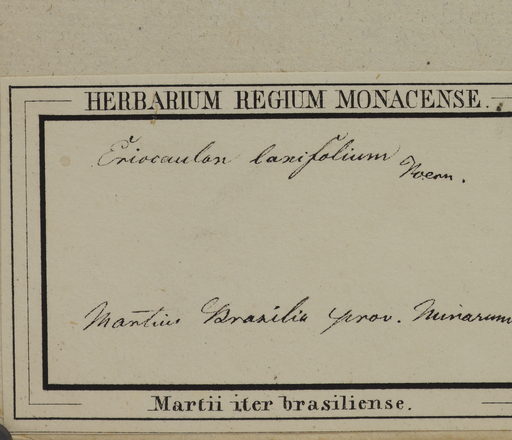 HERBARIUM REGIUM MONACENSE.
Eriocaulon laxifolium Koern.
Martius Brasilia prov. Minarum
Martii iter brasiliense.